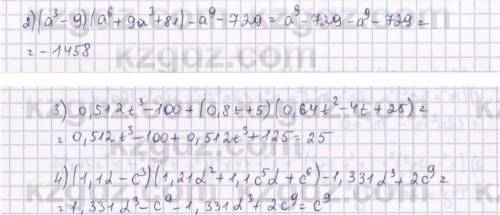 2) (a³-9)(a⁶+9a³+81)-a⁹-729=a⁹-729-a⁹-729=
=-1458
3) 0,512t³-100+(0,8t+5)(0,64t²-4t+25)=
=0,512t³-100+0,512t³+125=25
4) (1,1d-c³)(1,21d²+1,1c⁵d+c⁶)-1,331d³+2c⁹=
=1,331d³-c⁹-1,331d³+2c⁹=c⁹